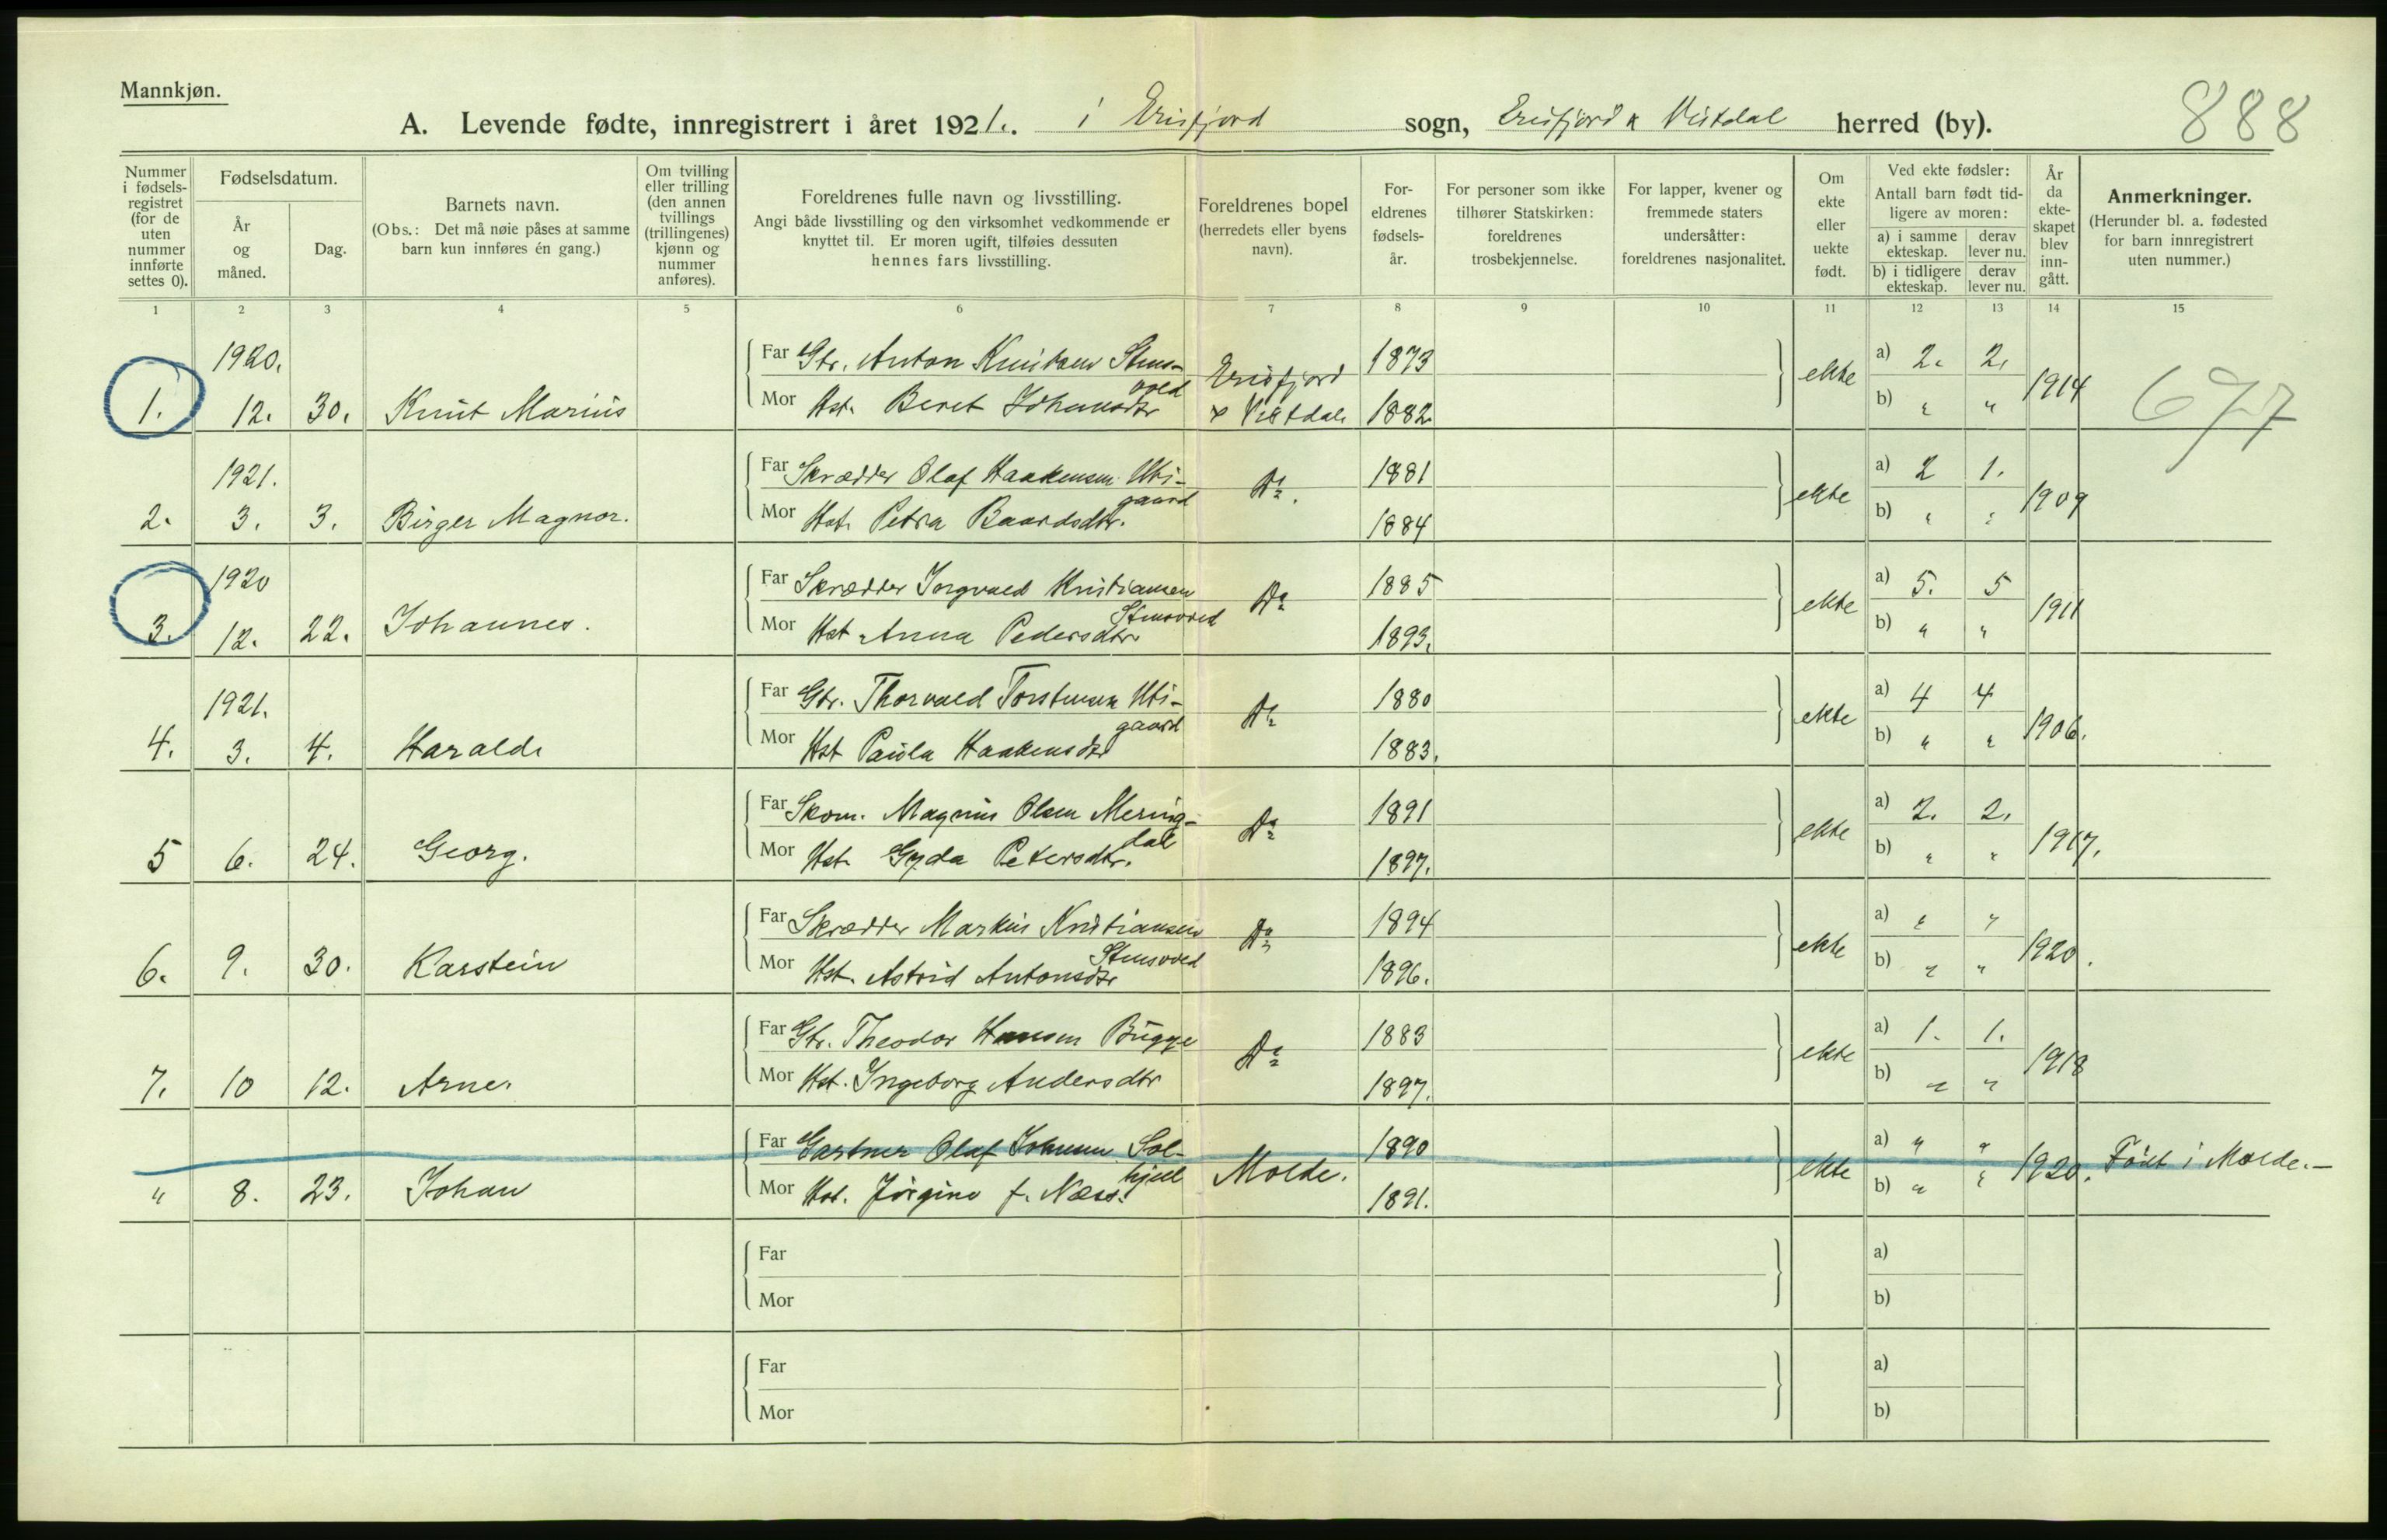 Mannkjøn.
888
A. Levende fødte, innregistrert i året 1921. i Erisfjord sogn, Erisfjord & Vistdal herred (by).
Nummer i fødsels-registret (for de uten nummer innførte settes 0).
Fødselsdatum.
År og måned.
Dag.
Barnets navn.
(Obs.: Det må nøie påses at samme barn kun innføres én gang.)
Om tvilling eller trilling (den annen tvillings (trillingenes) kjønn og nummer anføres).
Foreldrenes fulle navn og livsstilling.
Angi både livsstilling og den virksomhet vedkommende er knyttet til. Er moren ugift, tilføies dessuten hennes fars livsstilling.
Foreldrenes bopel (herredets eller byens navn).
For-eldrenes fødsels-år.
For personer som ikke tilhører Statskirken: foreldrenes trosbekjennelse.
For lapper, kvener og fremmede staters undersåtter: foreldrenes nasjonalitet.
Om ekte eller uekte født.
Ved ekte fødsler:
Antall barn født tid-ligere av moren:
a) i samme ekteskap. derav lever nu.
b) i tidligere ekteskap. derav lever nu.
År da ekte-skapet blev inn-gått.
Anmerkninger.
(Herunder bl. a. fødested for barn innregistrert uten nummer.)
1 2 3 4 5 6 7 8 9 10 11 12 13 14 15
1920. Far Gbr. Anton Knutsen Stens- Erisfjord 1873 ekte a) 2. 2. 1914 677
1. 12. 30. Knut Marius Mor Hst. Beret Johansdtr vold & Vistdal. 1882 b) " "
1921. Far Skrædder Olaf Haakensen Uti- Do. 1881 ekte a) 2 1. 1909
2. 3. 3. Birger Magnor. Mor Hst. Petra Baardsdtr. gaard 1884 b) " "
1920 Far Skrædder Torgvald Kristiansen Do 1885 ekte a) 5. 5 1911
3. 12. 22. Johannes. Mor Hst Anna Pedersdtr Stensvold 1893. b) " "
1921. Far Gbr. Thorvald Torstensen Uti- Do 1880 ekte a) 4 4 1906.
4. 3. 4. Harald. Mor Hst Paula Haakensdtr gaard 1883. b) " "
Far Skom. Magnus Olsen Mering- Do 1891 ekte a) 2. 2. 1917.
5 6. 24. Georg. Mor Hst. Gyda Petersdtr. dal 1897. b) " "
Far Skrædder Markus Kristiansen Do 1894 ekte a) " " 1920.
6. 9. 30. Karstein Mor Hst. Astrid Antonsdtr Stensvold 1896. b) " "
Far Gbr. Theodor Hansen Bugge Do 1883 ekte a) 1. 1. 1918
7. 10 12. Arne. Mor Hst. Ingeborg Andersdtr 1897. b) " "
Far Gartner Olaf Johnsen Sol- Molde. 1890 ekte a) " " 1920. Født i Molde.—
" 8. 23. Johan Mor Hst. Jørgine f. Næss. hjell 1891. b) " "
Far a)
Mor b)
Far a)
Mor b)